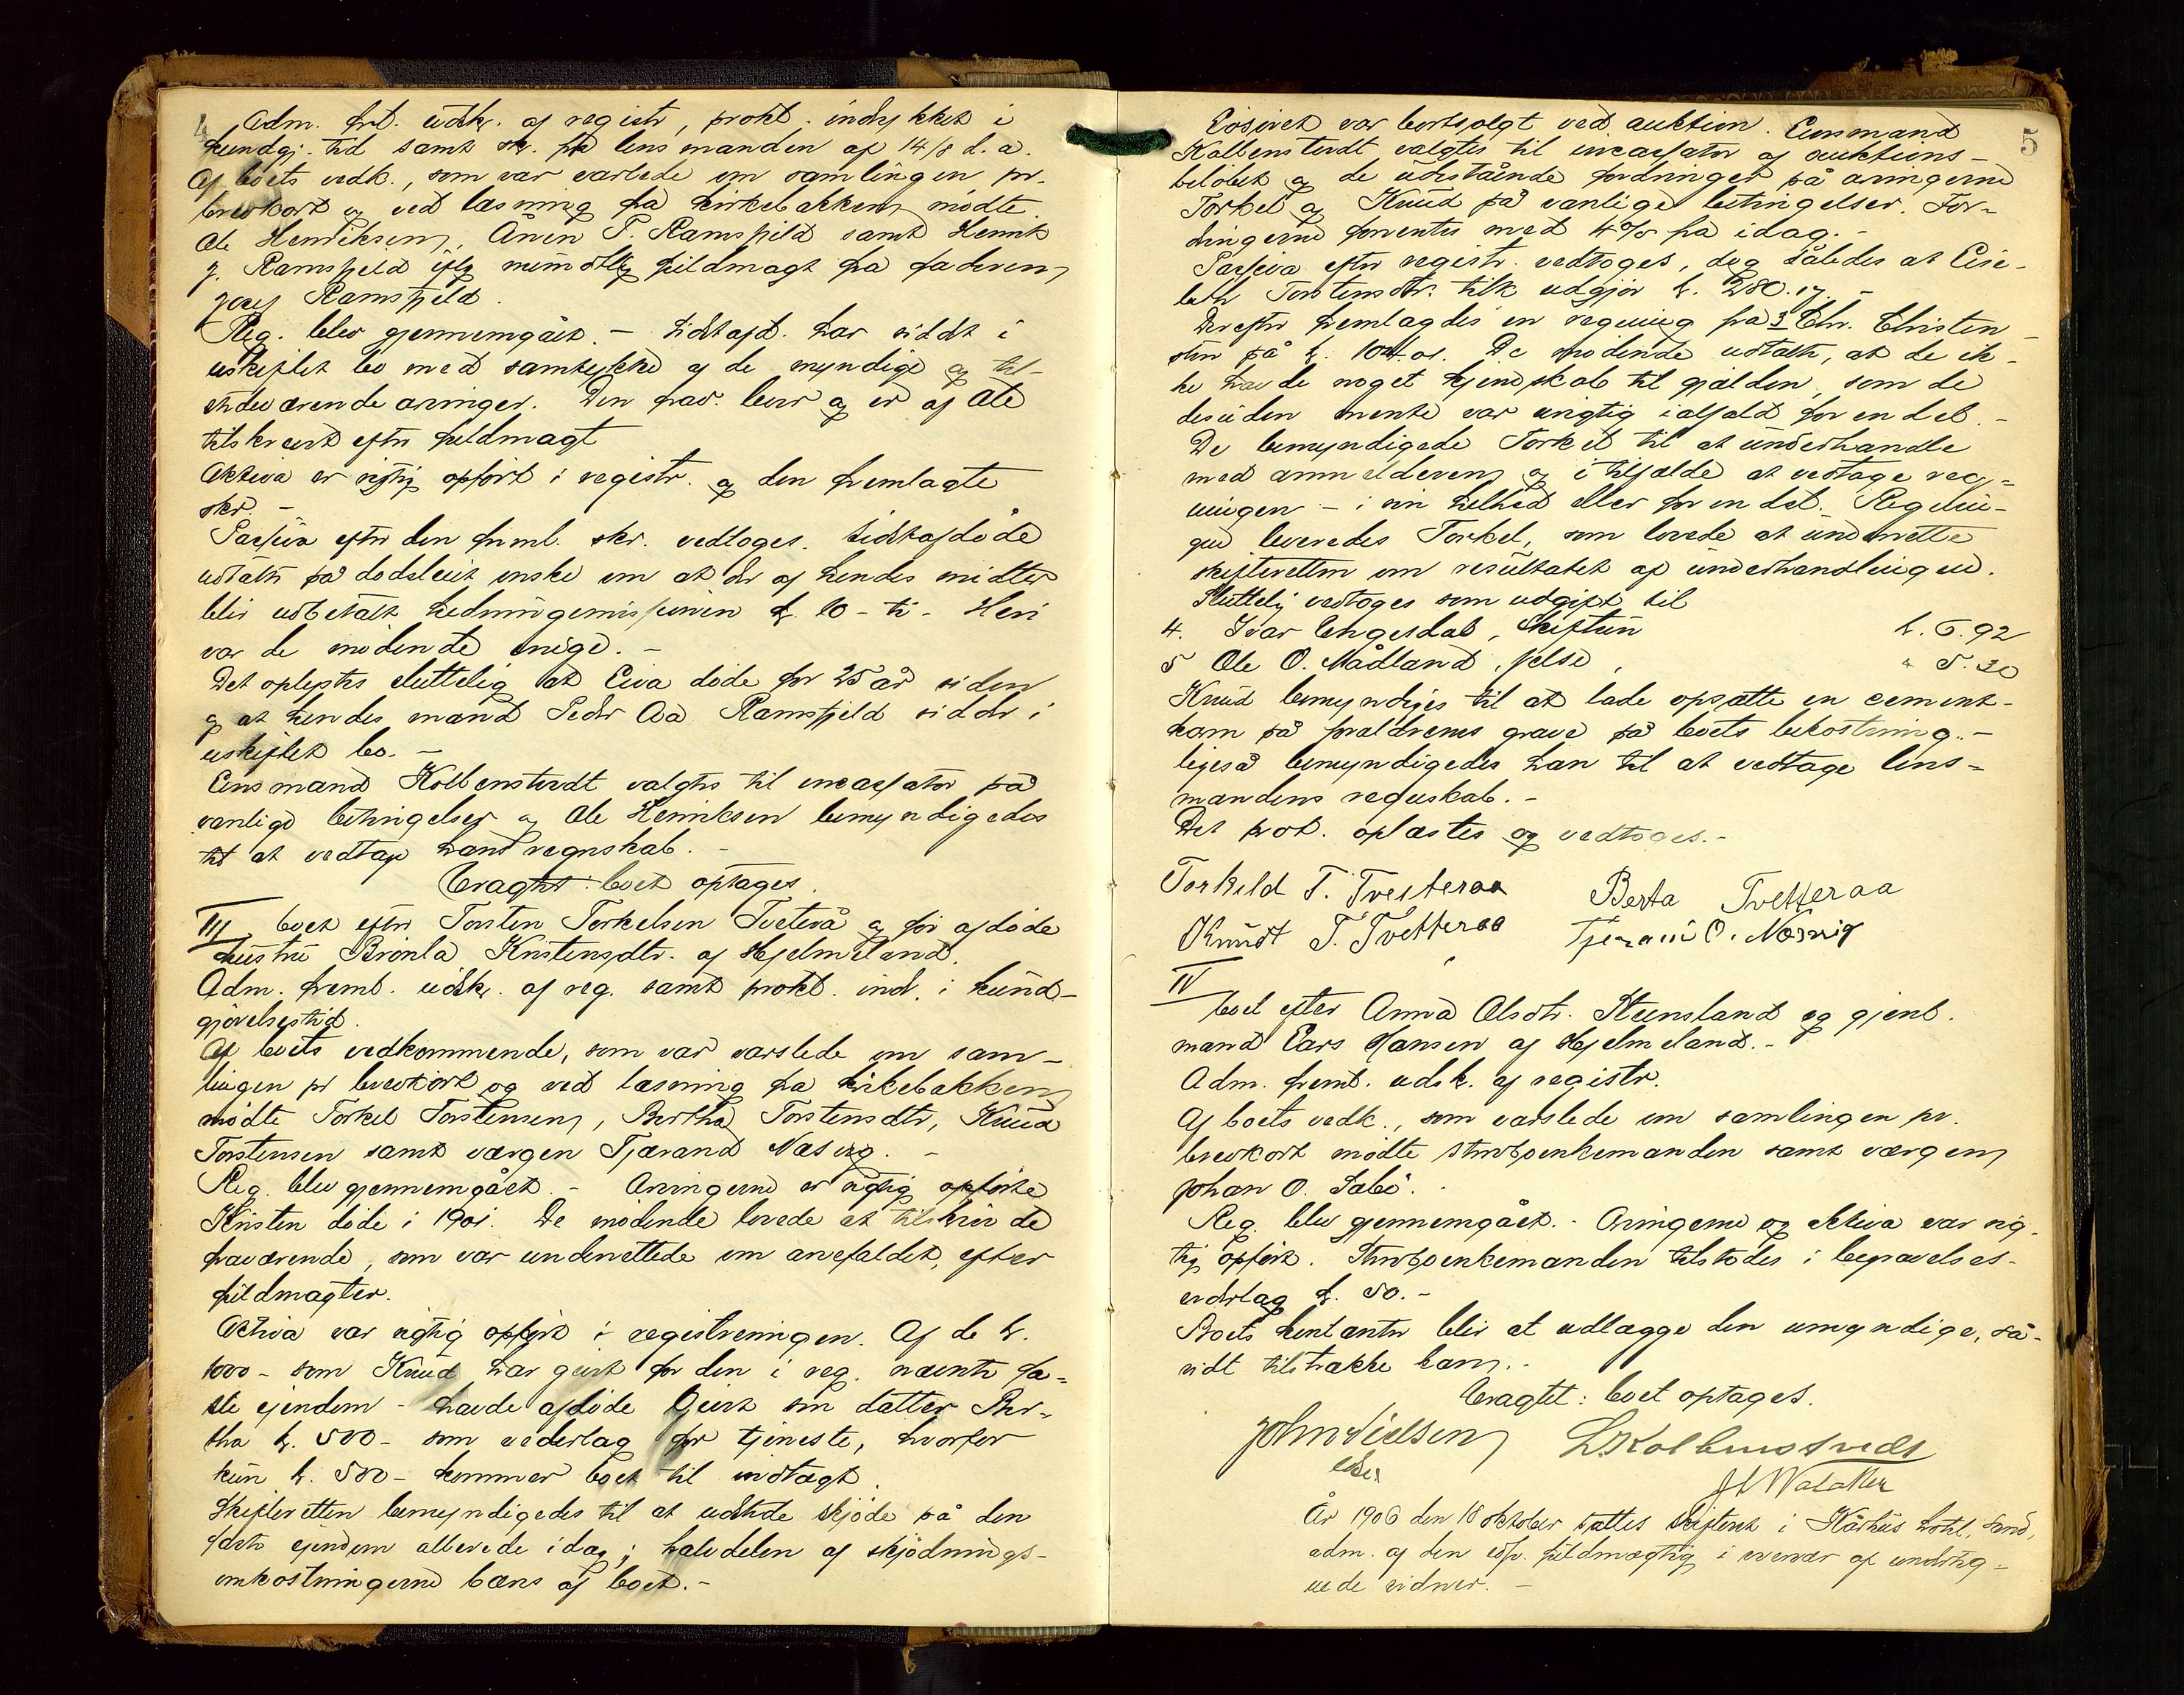 4
Adm. frl. udskr. af registr., prokl. indrykket i
kundgj. tid samt skr. fra lensmanden af 14/8 d. a.
Af boets vedk., som var varslede om samlingen pr.
brevkort og ved læsning fra kirkebakken mødte
Ole Henriksen, Ånen P. Ramsfjeld samt Henrik
J. Ramsfjeld iflg mundtlig fuldmagt fra faderen,
Josef Ramsfjeld.
Reg. blev gjennemgået. – Sidstafd. har siddet i
uskiftet bo med samtykke af de myndige og til-
stedeværende arvinger. Den frav. lever og er af Ole
tilskrevet efter fuldmagt
Aktiva er rigtig opført i registr. og den fremlagte
skr. –
Passiva efter den freml. skr. vedtoges. Sidstafdøde
udtalte på dødsleiet ønske om at der af hendes midler
blir udbetalt hedningemissionen kr. 10 – ti – Heri
var de mødende enige. –
Det oplystes sluttelig at Eiva døde for 25 år siden
og at hendes mand Peder Aa Ramsfjeld sidder i
uskiftet bo. –
Lensmand Kolbenstvedt valgtes til incassator på
vanlige betingelser og Ole Henriksen bemyndigedes
til at vedtage hans regnskab. –
Eragtet: boet optages.
III boet efter Torsten Torkelsen Tveterå og før afdøde
hustru Brønla Kristensdtr. af Hjelmeland.
Adm. freml. udskr. af reg. samt prokl. ind. i kund-
gjørelsestid.
Af boets vedkommende, som var varslede om sam-
lingen pr brevkort og ved læsning fra kirkebakken,
mødte Torkel Torstensen, Bertha Torstensdtr, Knud
Torstensen samt værgen Tjærand Næsvig. –
Reg. blev gjennemgået. – Arvingerne er rigtig opførte
Kristen døde i 1901. De mødende lovede at tilskrive de
fraværende, som var underrettede om arvefaldet, efter
fuldmagter.
Activa var rigtig opført i registreringen. Af de kr.
1000 – som Knud har givet for den i reg. nævnte fa-
ste ejendom – havde afdøde givet sin datter Ber-
tha kr. 500 – som vederlag for tjeneste, hvorfor
kun kr. 500 – kommer boet til indtægt.
Skifteretten bemyndigedes til at udstede skjøde på den
faste ejendom allerede idag; halvdelen af skjødnings-
omkostningerne bæres af boet. –
5
Løsøret var bortsolgt ved auktion. Lensmand
Kolbenstvedt valgtes til incassator af auktions-
beløbet og de udestående fordringer på arvingerne
Torkel og Knud på vanlige betingelser. For-
dringerne forrentes med 4 % fra idag. –
Passiva efter registr. vedtoges, dog således at Lise-
beth Torstensdtr. tilk udgjør kr. 280.17 –
Derefter fremlagdes en regning fra 3 Chr. Christen
sen på kr. 104.01. De mødende udtalte, at de ik-
ke havde noget kjendskab til gjælden, som de
desuden mente var urigtig ialfald for en del. –
De bemyndigede Torkel til at underhandle
med anmelderen, og i tilfælde at vedtage reg-
ningen – i sin helhed eller for en del. Regnin-
gen leveredes Torkel, som lovede at underrette
skifteretten om resultatet af underhandlingen.
Sluttelig vedtoges som udgift til
4. Ivar Engesdal, Skiftun kr. 6.92
5 Ole O. Mådland, jelse, " 5.30
Knud bemyndiges til at lade opsætte en cement-
kam på forældrenes grave på boets bekostning. –
ligeså bemyndigedes han til at vedtage lens-
mandens regnskab. –
Det prot. oplæstes og vedtoges. –
Torkild T. Tveiteraa Berta Tvetteraa
Knudt T. Tvetteraa Tjeran O. Næsvig
IV
boet efter Anna Olsdtr. Steinsland og gjenl.
mand Lars Hansen af Hjelmeland. –
Adm. freml. udsk. af registr.
Af boets vedk., som varslede om samlingen pr.
brevkort mødte stervboenkemanden samt værgen,
Johan O. Sæbø. –
Reg. blev gjennemgået. – Arvingerne og aktiva var rig-
tig opført. Stervboenkemanden tilstodes i begravelses-
vederlag kr. 50. –
Boets kontanter blir at udlægge den umyndige, så-
vidt tilstrække kan. –
Eragtet: boet optages.
John Nielsen L. Kolbenstvedt
J L Walaker
År 1906 den 18 oktober sattes skifteret i Kårhus hotel, Sand,
adm. af den edsv. fuldmægtig i overvær af undertig-
nede vidner. –